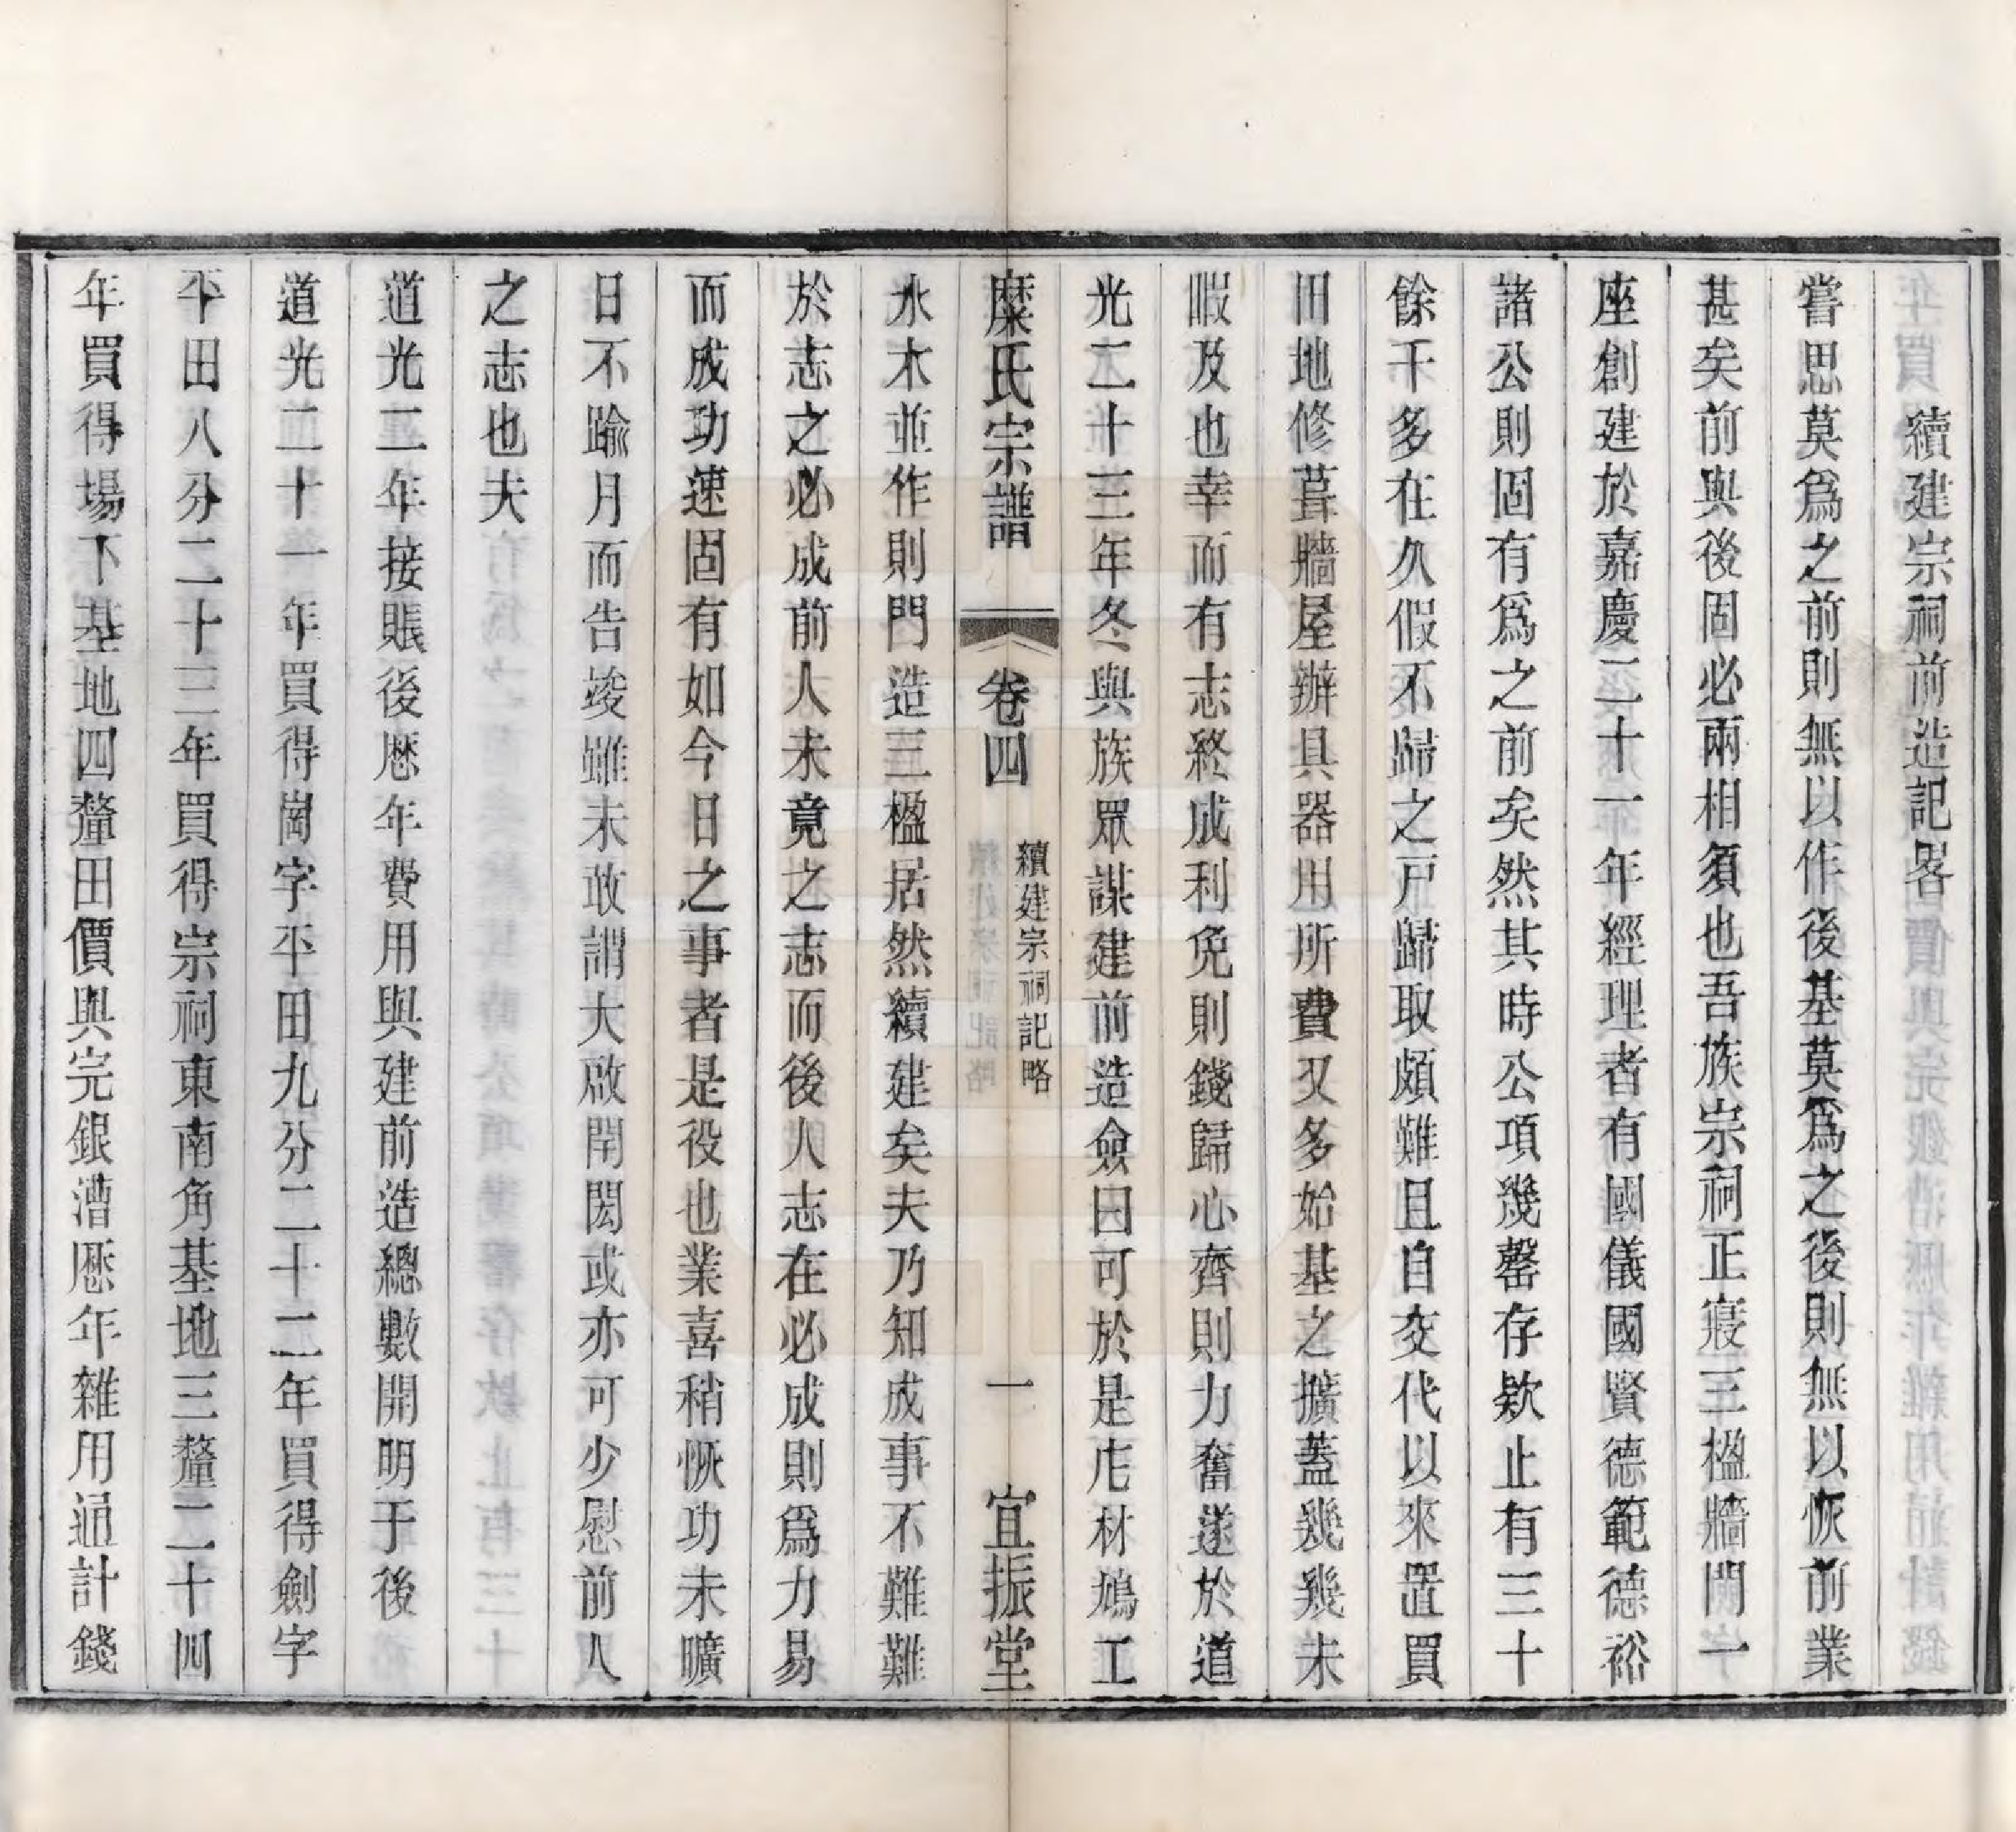 續建宗祠前造記畧
嘗思莫爲之前則無以作後基莫爲之後則無以恢前業
甚矣前與後固必兩相須也吾族宗祠正寢三楹牆門一
座創建於嘉慶二十一年經理者有國儀國賢德範德裕
諸公則固有爲之前矣然其時公項幾罄存欵止有三十
餘千多在久假不歸之戸歸取頗難且自交代以來置買
田地修葺牆屋辦具器用所費又多始基之擴蓋幾幾未
暇及也幸而有志終成利免則錢歸心齊則力奮遂於道
光二十三年冬與族眾謀建前造僉曰可於是庀材鳩工
糜氏宗譜
卷四
續建宗祠記略
一
宜振堂
水木並作則門造三楹居然續建矣夫乃知成事不難難
於志之必成前人未竟之志而後人志在必成則爲力易
而成功速固有如今日之事者是役也業喜稍恢功未曠
日不踰月而告竣雖未敢謂大啟閈閎或亦可少慰前人
之志也夫
道光二年接賬後歷年費用與建前造總數開明于後
道光二十一年買得崗字平田九分二十二年買得劍字
平田八分二十三年買得宗祠東南角基地三釐二十四
年買得場下基地四釐田價與完銀漕歷年雜用通計錢